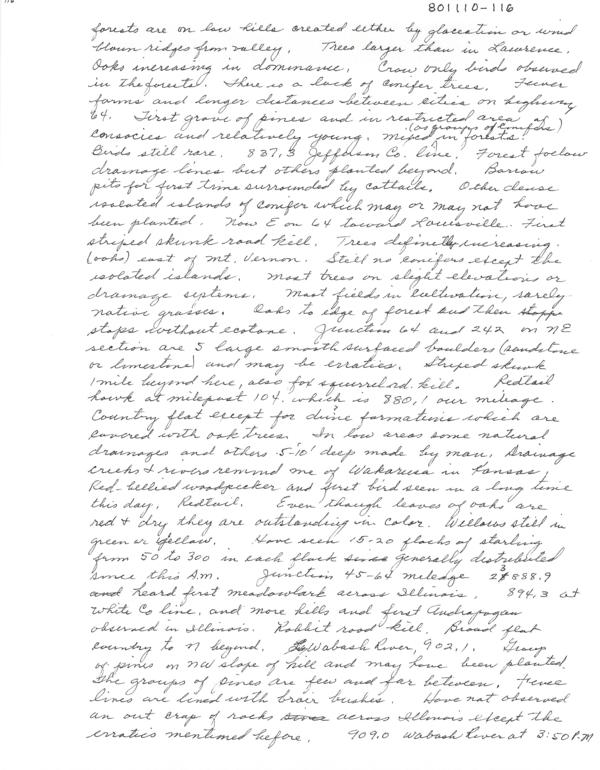 116
801110-116
forests are on low hills created either by glaceation or wind
blown ridges from valley. Trees larger than in Lawrence.
Oaks increasing in dominance. Crow only birds observed
in the forests. There is a lack of conifer trees. Fewer
farms and longer distances between cities on highway
64. First grove of pines and in restricted area of
(as groups of conifers)
consocies and relatively young. Mixed in forests.
Birds still rare. 837.3 Jefferson Co. line. Forest follow
drainage lines but others planted beyond. Barrow
pits for first time surrounded by cattails. Other dense
isolated islands of conifer which may or may not have
been planted. Now E on 64 toward Louisville. First
striped skunk road kill. Trees definetly increasing
(oaks) east of Mt. Vernon. Still no conifers except the
isolated islands. Most trees on slight elevations or
drainage systems. Most fields in cultivation, rarely
native grasses. Oaks to edge of forest and then stopps
stops without ecotone. Junction 64 and 242 on NE
section are 5 large smooth surfaced boulders (sandstone
or limestone) and may be erratics. Striped skunk
1 mile beyond here, also fox squirrel rd. kill. Redtail
hawk at milepost 104. which is 880.1 our mileage.
Country flat except for dune formations which are
covered with oak trees. In low areas some natural
drainages and others 5-10' deep made by man. Drainage
creeks & rivers remind me of Wakarusa in Kansas.
Red-bellied woodpecker and first bird seen in a long time
this day. Redtail. Even though leaves of oaks are
red & dry they are outstanding in color. Willows still in
green or yellow. Have seen 15-20 flocks of starling
from 50 to 300 in each flock since generally distributed
since this A.M. Junction 45-64 meleage 23888.9
and heard first meadowlark across Illinois. 894.3 at
White Co line. and more hills and first Andropogon
observed in Illinois. Rabbit road kill. Broad flat
country to N beyond. Wabash River, 902.1. Group
of pines on NW slope of hill and may have been planted.
The groups of pines are few and far between. Fence
lines are lined with brair bushes. Have not observed
an out crop of rocks since across Illinois except the
erratics mentioned before. 909.0 Wabash River at 3:50 P.M